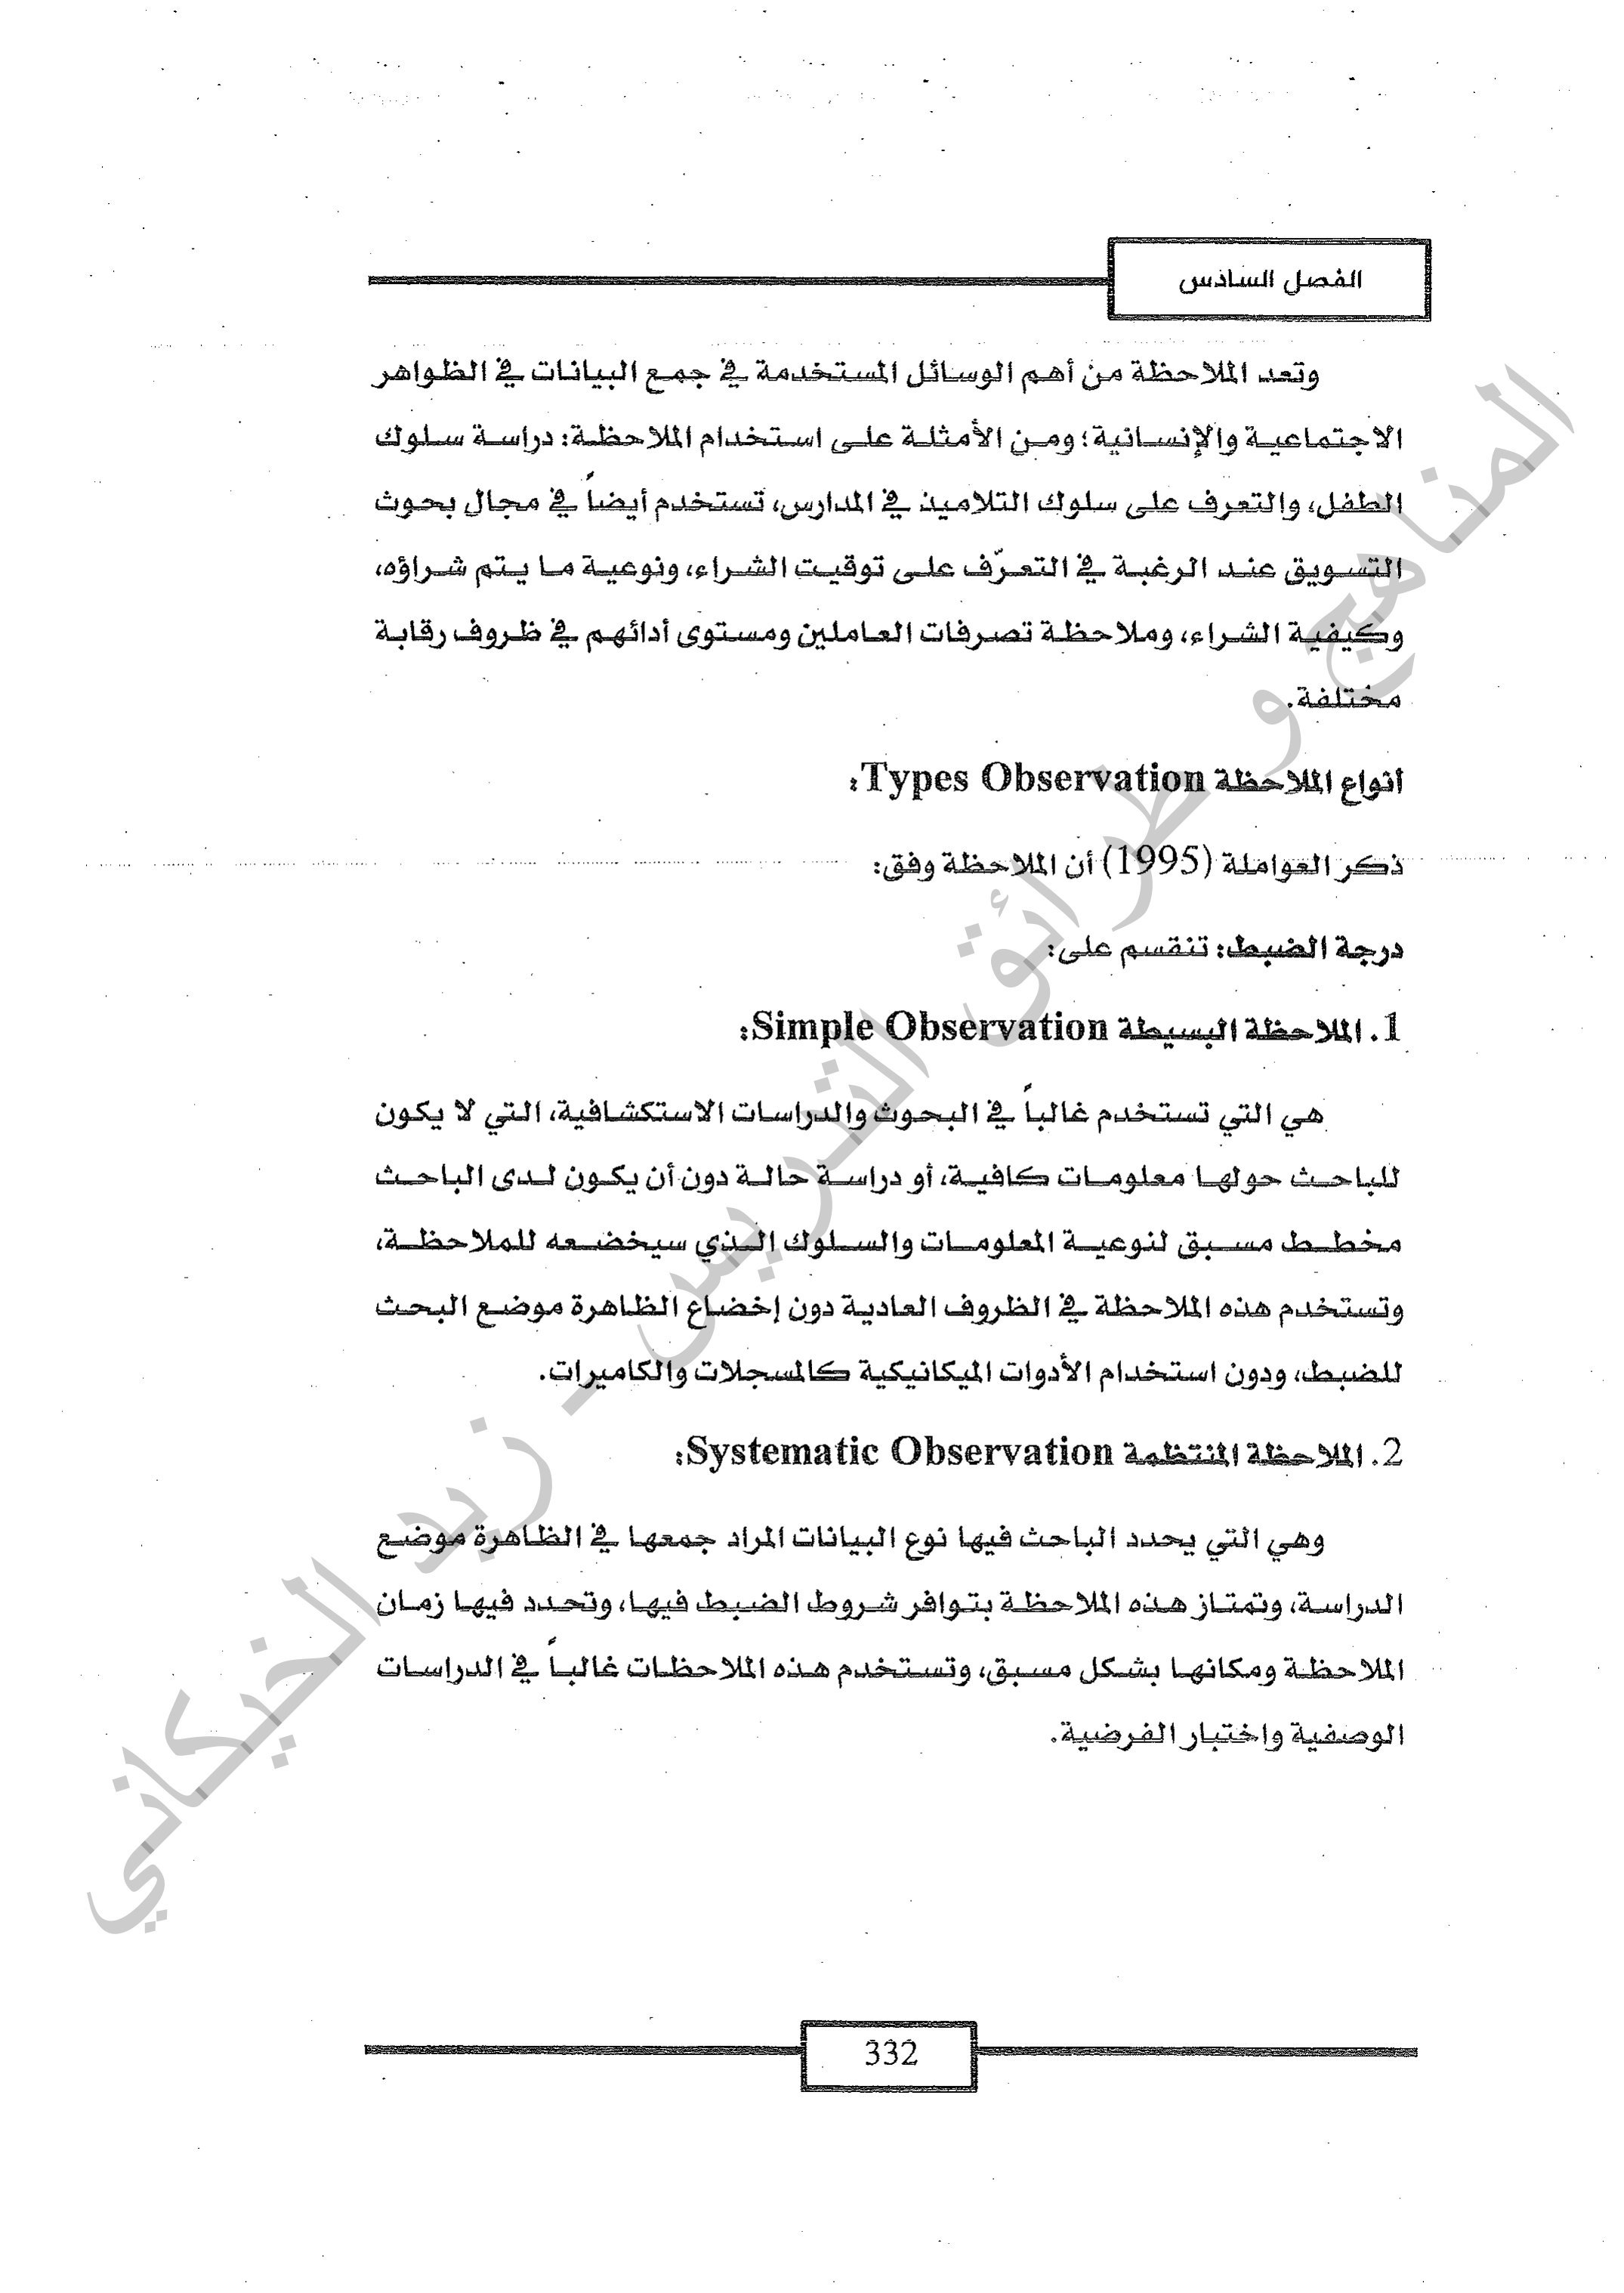 الفصل السادس
وتعد الملاحظة من أهم الوسائل المستخدمة في جمع البيانات في الظواهر
الاجتماعية والإنسانية؛ ومن الأمثلة على استخدام الملاحظة: دراسة سلوك
الطفل، والتعرف على سلوك التلاميذ في المدارس، تستخدم أيضاً في مجال بحوث
التسويق عند الرغبة في التعرّف على توقيت الشراء، ونوعية ما يتم شراؤه،
وكيفية الشراء، وملاحظة تصرفات العاملين ومستوى أدائهم في ظروف رقابة
مختلفة.
انواع الملاحظة Types Observation:
ذكر العواملة (1995) أن الملاحظة وفق:
درجة الضبط: تنقسم على:
1. الملاحظة البسيطة Simple Observation:
هي التي تستخدم غالباً في البحوث والدراسات الاستكشافية، التي لا يكون
للباحث حولها معلومات كافية، أو دراسة حالة دون أن يكون لدى الباحث
مخطط مسبق لنوعية المعلومات والسلوك الذي سيخضعه للملاحظة،
وتستخدم هذه الملاحظة في الظروف العادية دون إخضاع الظاهرة موضع البحث
للضبط، ودون استخدام الأدوات الميكانيكية كالمسجلات والكاميرات.
2. الملاحظة المنتظمة Systematic Observation:
وهي التي يحدد الباحث فيها نوع البيانات المراد جمعها في الظاهرة موضع
الدراسة، وتمتاز هذه الملاحظة بتوافر شروط الضبط فيها، وتحدد فيها زمان
الملاحظة ومكانها بشكل مسبق، وتستخدم هذه الملاحظات غالباً في الدراسات
الوصفية واختبار الفرضية.
332
المناهج و طرائق التدريس - زيد الخيكاني